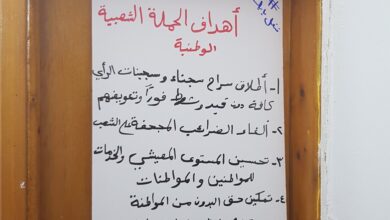 أهداف الحملة الشعبية
الوطنية
١- إطلاق سراح سجناء وسجينات الرأي
كافة دون قيد وشرط فوراً وتعويضهم
٢- الغاء الضرائب المجحفة على الشعب
٣- تحسين المستوى المعيشي والخدمات
للمواطنين والمواطنات
٤- تمكين حق البدون من المواطنة